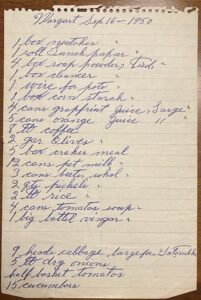 Margart Sep 16 - 1950
1 box matches
1 roll Lunch paper "
4 box soap powders, Tide "
1 box cleanser "
1 wire for pots "
1 box corn starch "
4 cans grapefruit juice, Large "
5 cans orange juice 11 "
8 lb coffee
2 jar Olives "
2 box craker meal
12 cans pet milk "
3 cans beets, whol "
2 qts pickels "
2 lb rice "
4 cans tomatos soup "
1 big bottel vinger "
9 heads cabbage large for
5 lb dry onions
half basket tomatos
15 cucumbers